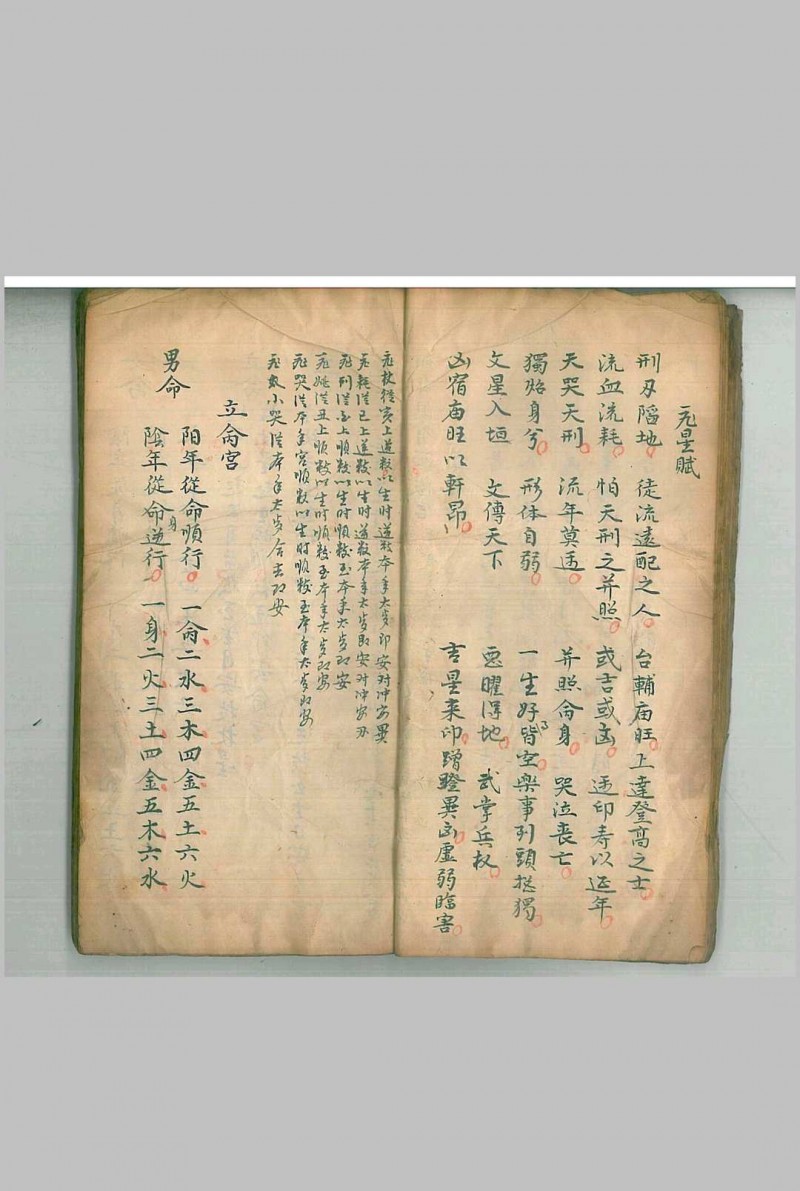 星賦
刑刃陷地 徒流遠配之人 台輔庙旺 上達登高之士
流血流耗 怕天刑之并照 或吉或凶 还印寿以延年
天哭天刑 流年莫逢 并照命身 哭泣喪亡
獨貽身兮 形体自弱 一生好皆空 樂事到頭揔獨
文星入垣 文傳天下 惡曜得地 武掌兵权
凶宿庙旺以軒昂 吉星来印蹭蹬 異凶虛弱臨害
杖從寅上逆数以生时逆数本年太岁印安对冲安異
耗從巳上逆数以生时逆数本年太岁即安对冲安刃
刑從酉上順数以生时順数至本年太岁即安
姚從丑上順数以生时順数至本年太岁即安
哭從本年宮順数以生时順数至本年太岁即安
小哭從本年太岁
立命宮
男命
阳年從命順行 一命二水三木四金五土六火
陰年從命身逆行 一身二火三土四金五木六水